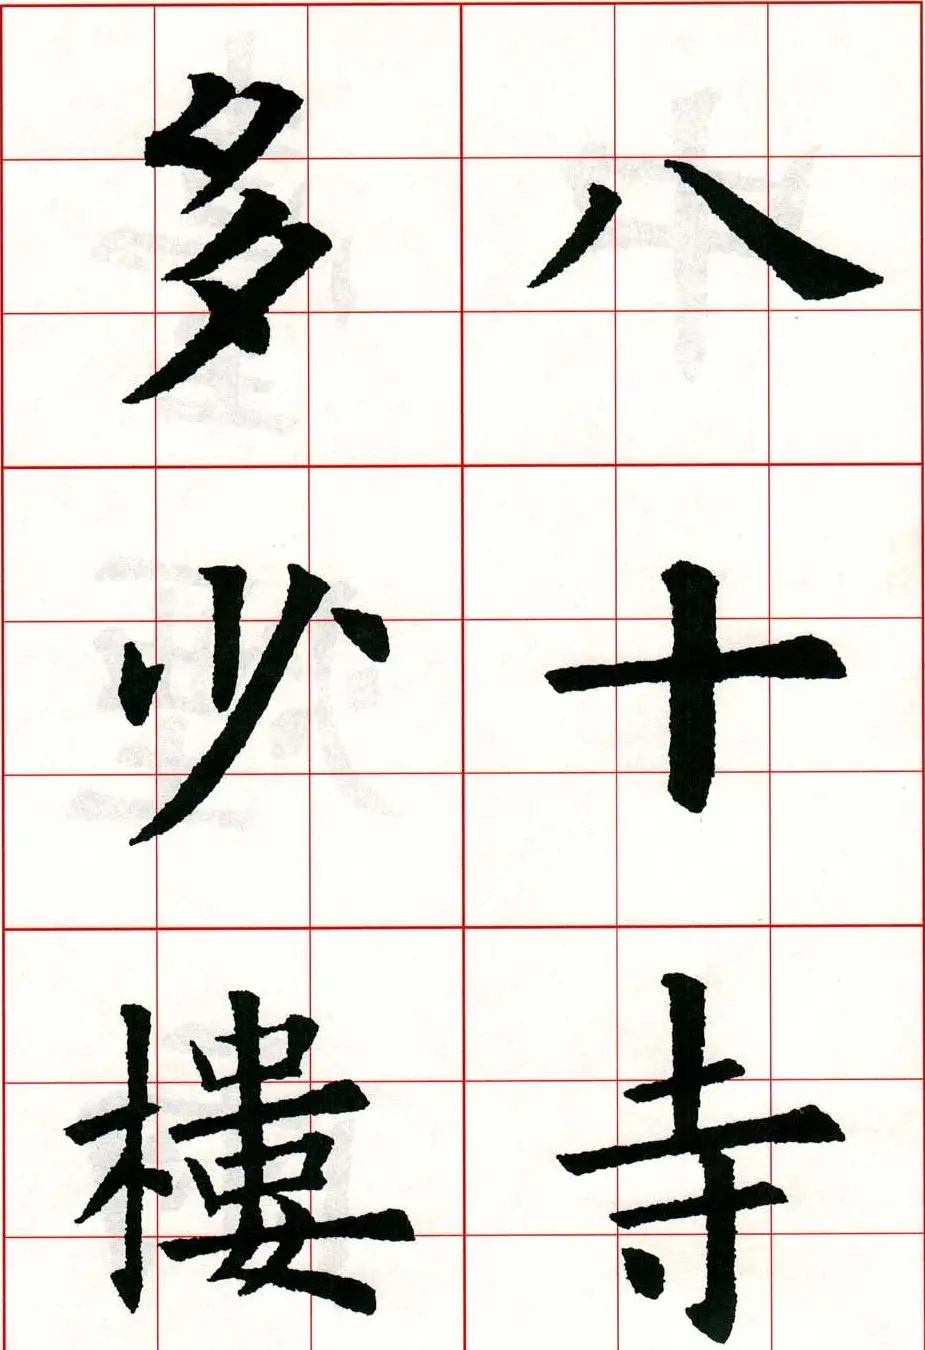 八十寺
多少樓